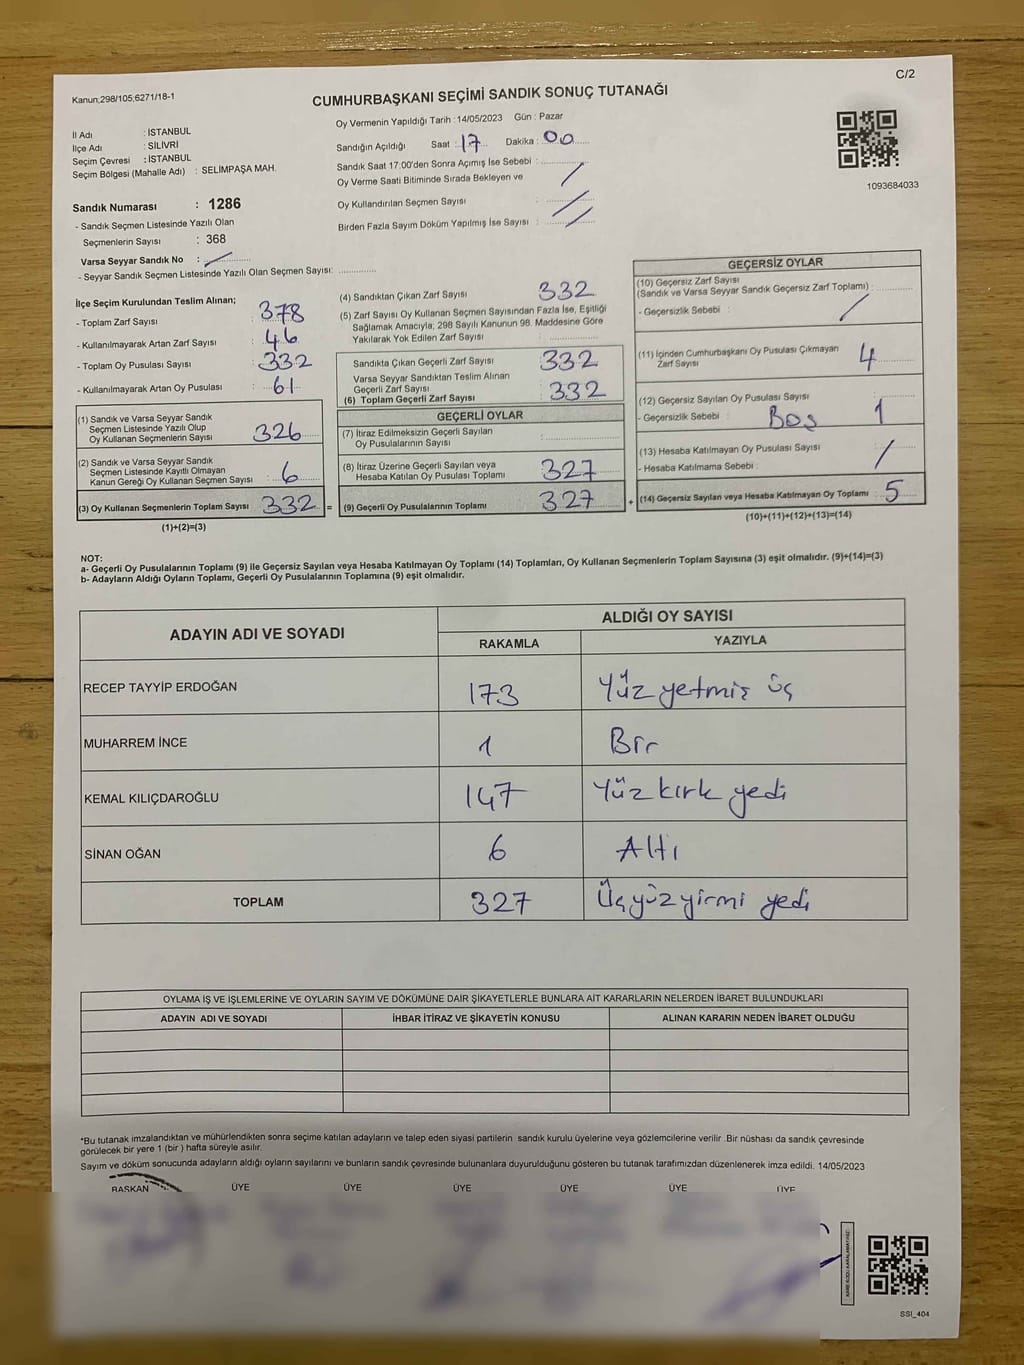 C/2
Kanun;298/105;6271/18-1
CUMHURBAŞKANI SEÇİMİ SANDIK SONUÇ TUTANAĞI
İl Adı : İSTANBUL
İlçe Adı : SİLİVRİ
Seçim Çevresi : İSTANBUL
Seçim Bölgesi (Mahalle Adı) : SELİMPAŞA MAH.
Sandık Numarası : 1286
- Sandık Seçmen Listesinde Yazılı Olan
Seçmenlerin Sayısı : 368
Varsa Seyyar Sandık No :
- Seyyar Sandık Seçmen Listesinde Yazılı Olan Seçmen Sayısı:
Oy Vermenin Yapıldığı Tarih :14/05/2023 Gün : Pazar
Sandığın Açıldığı Saat : 17 Dakika : 00
Sandık Saat 17:00'den Sonra Açımış İse Sebebi :
Oy Verme Saati Bitiminde Sırada Bekleyen ve
Oy Kullandırılan Seçmen Sayısı
Birden Fazla Sayım Döküm Yapılmış İse Sayısı :
1093684033
İlçe Seçim Kurulundan Teslim Alınan;
- Toplam Zarf Sayısı : 378
- Kullanılmayarak Artan Zarf Sayısı : 46
- Toplam Oy Pusulası Sayısı : 332
- Kullanılmayarak Artan Oy Pusulası : 61
(1) Sandık ve Varsa Seyyar Sandık
Seçmen Listesinde Yazılı Olup
Oy Kullanan Seçmenlerin Sayısı 326
(2) Sandık ve Varsa Seyyar Sandık
Seçmen Listesinde Kayıtlı Olmayan
Kanun Gereği Oy Kullanan Seçmen Sayısı 6
(3) Oy Kullanan Seçmenlerin Toplam Sayısı 332 =
(1)+(2)=(3)
(4) Sandıktan Çıkan Zarf Sayısı 332
(5) Zarf Sayısı Oy Kullanan Seçmen Sayısından Fazla İse, Eşitliği
Sağlamak Amacıyla; 298 Sayılı Kanunun 98. Maddesine Göre
Yakılarak Yok Edilen Zarf Sayısı :
Sandıkta Çıkan Geçerli Zarf Sayısı 332
Varsa Seyyar Sandıktan Teslim Alınan
Geçerli Zarf Sayısı
(6) Toplam Geçerli Zarf Sayısı 332
GEÇERLİ OYLAR
(7) İtiraz Edilmeksizin Geçerli Sayılan
Oy Pusulalarının Sayısı :
(8) İtiraz Üzerine Geçerli Sayılan veya
Hesaba Katılan Oy Pusulası Toplamı 327
(9) Geçerli Oy Pusulalarının Toplamı 327 +
GEÇERSİZ OYLAR
(10) Geçersiz Zarf Sayısı
(Sandık ve Varsa Seyyar Sandık Geçersiz Zarf Toplamı) :
- Geçersizlik Sebebi :
(11) İçinden Cumhurbaşkanı Oy Pusulası Çıkmayan
Zarf Sayısı 4
(12) Geçersiz Sayılan Oy Pusulası Sayısı 1
- Geçersizlik Sebebi : Boş
(13) Hesaba Katılmayan Oy Pusulası Sayısı
- Hesaba Katılmama Sebebi :
(14) Geçersiz Sayılan veya Hesaba Katılmayan Oy Toplamı 5
(10)+(11)+(12)+(13)=(14)
NOT:
a- Geçerli Oy Pusulalarının Toplamı (9) ile Geçersiz Sayılan veya Hesaba Katılmayan Oy Toplamı (14) Toplamları, Oy Kullanan Seçmenlerin Toplam Sayısına (3) eşit olmalıdır. (9)+(14)=(3)
b- Adayların Aldığı Oyların Toplamı, Geçerli Oy Pusulalarının Toplamına (9) eşit olmalıdır.
ADAYIN ADI VE SOYADI ALDIĞI OY SAYISI
RAKAMLA YAZIYLA
RECEP TAYYİP ERDOĞAN 173 Yüz yetmiş üç
MUHARREM İNCE 1 Bir
KEMAL KILIÇDAROĞLU 147 Yüz kırk yedi
SİNAN OĞAN 6 Altı
TOPLAM 327 Üçyüz yirmi yedi
OYLAMA İŞ VE İŞLEMLERİNE VE OYLARIN SAYIM VE DÖKÜMÜNE DAİR ŞİKAYETLERLE BUNLARA AİT KARARLARIN NELERDEN İBARET BULUNDUKLARI
ADAYIN ADI VE SOYADI İHBAR İTİRAZ VE ŞİKAYETİN KONUSU ALINAN KARARIN NEDEN İBARET OLDUĞU
*Bu tutanak imzalandıktan ve mühürlendikten sonra seçime katılan adayların ve talep eden siyasi partilerin sandık kurulu üyelerine veya gözlemcilerine verilir .Bir nüshası da sandık çevresinde
görülecek bir yere 1 (bir ) hafta süreyle asılır.
Sayım ve döküm sonucunda adayların aldığı oyların sayılarını ve bunların sandık çevresinde bulunanlara duyurulduğunu gösteren bu tutanak tarafımızdan düzenlenerek imza edildi. 14/05/2023
BAŞKAN ÜYE ÜYE ÜYE ÜYE ÜYE ÜYE
SSİ_404